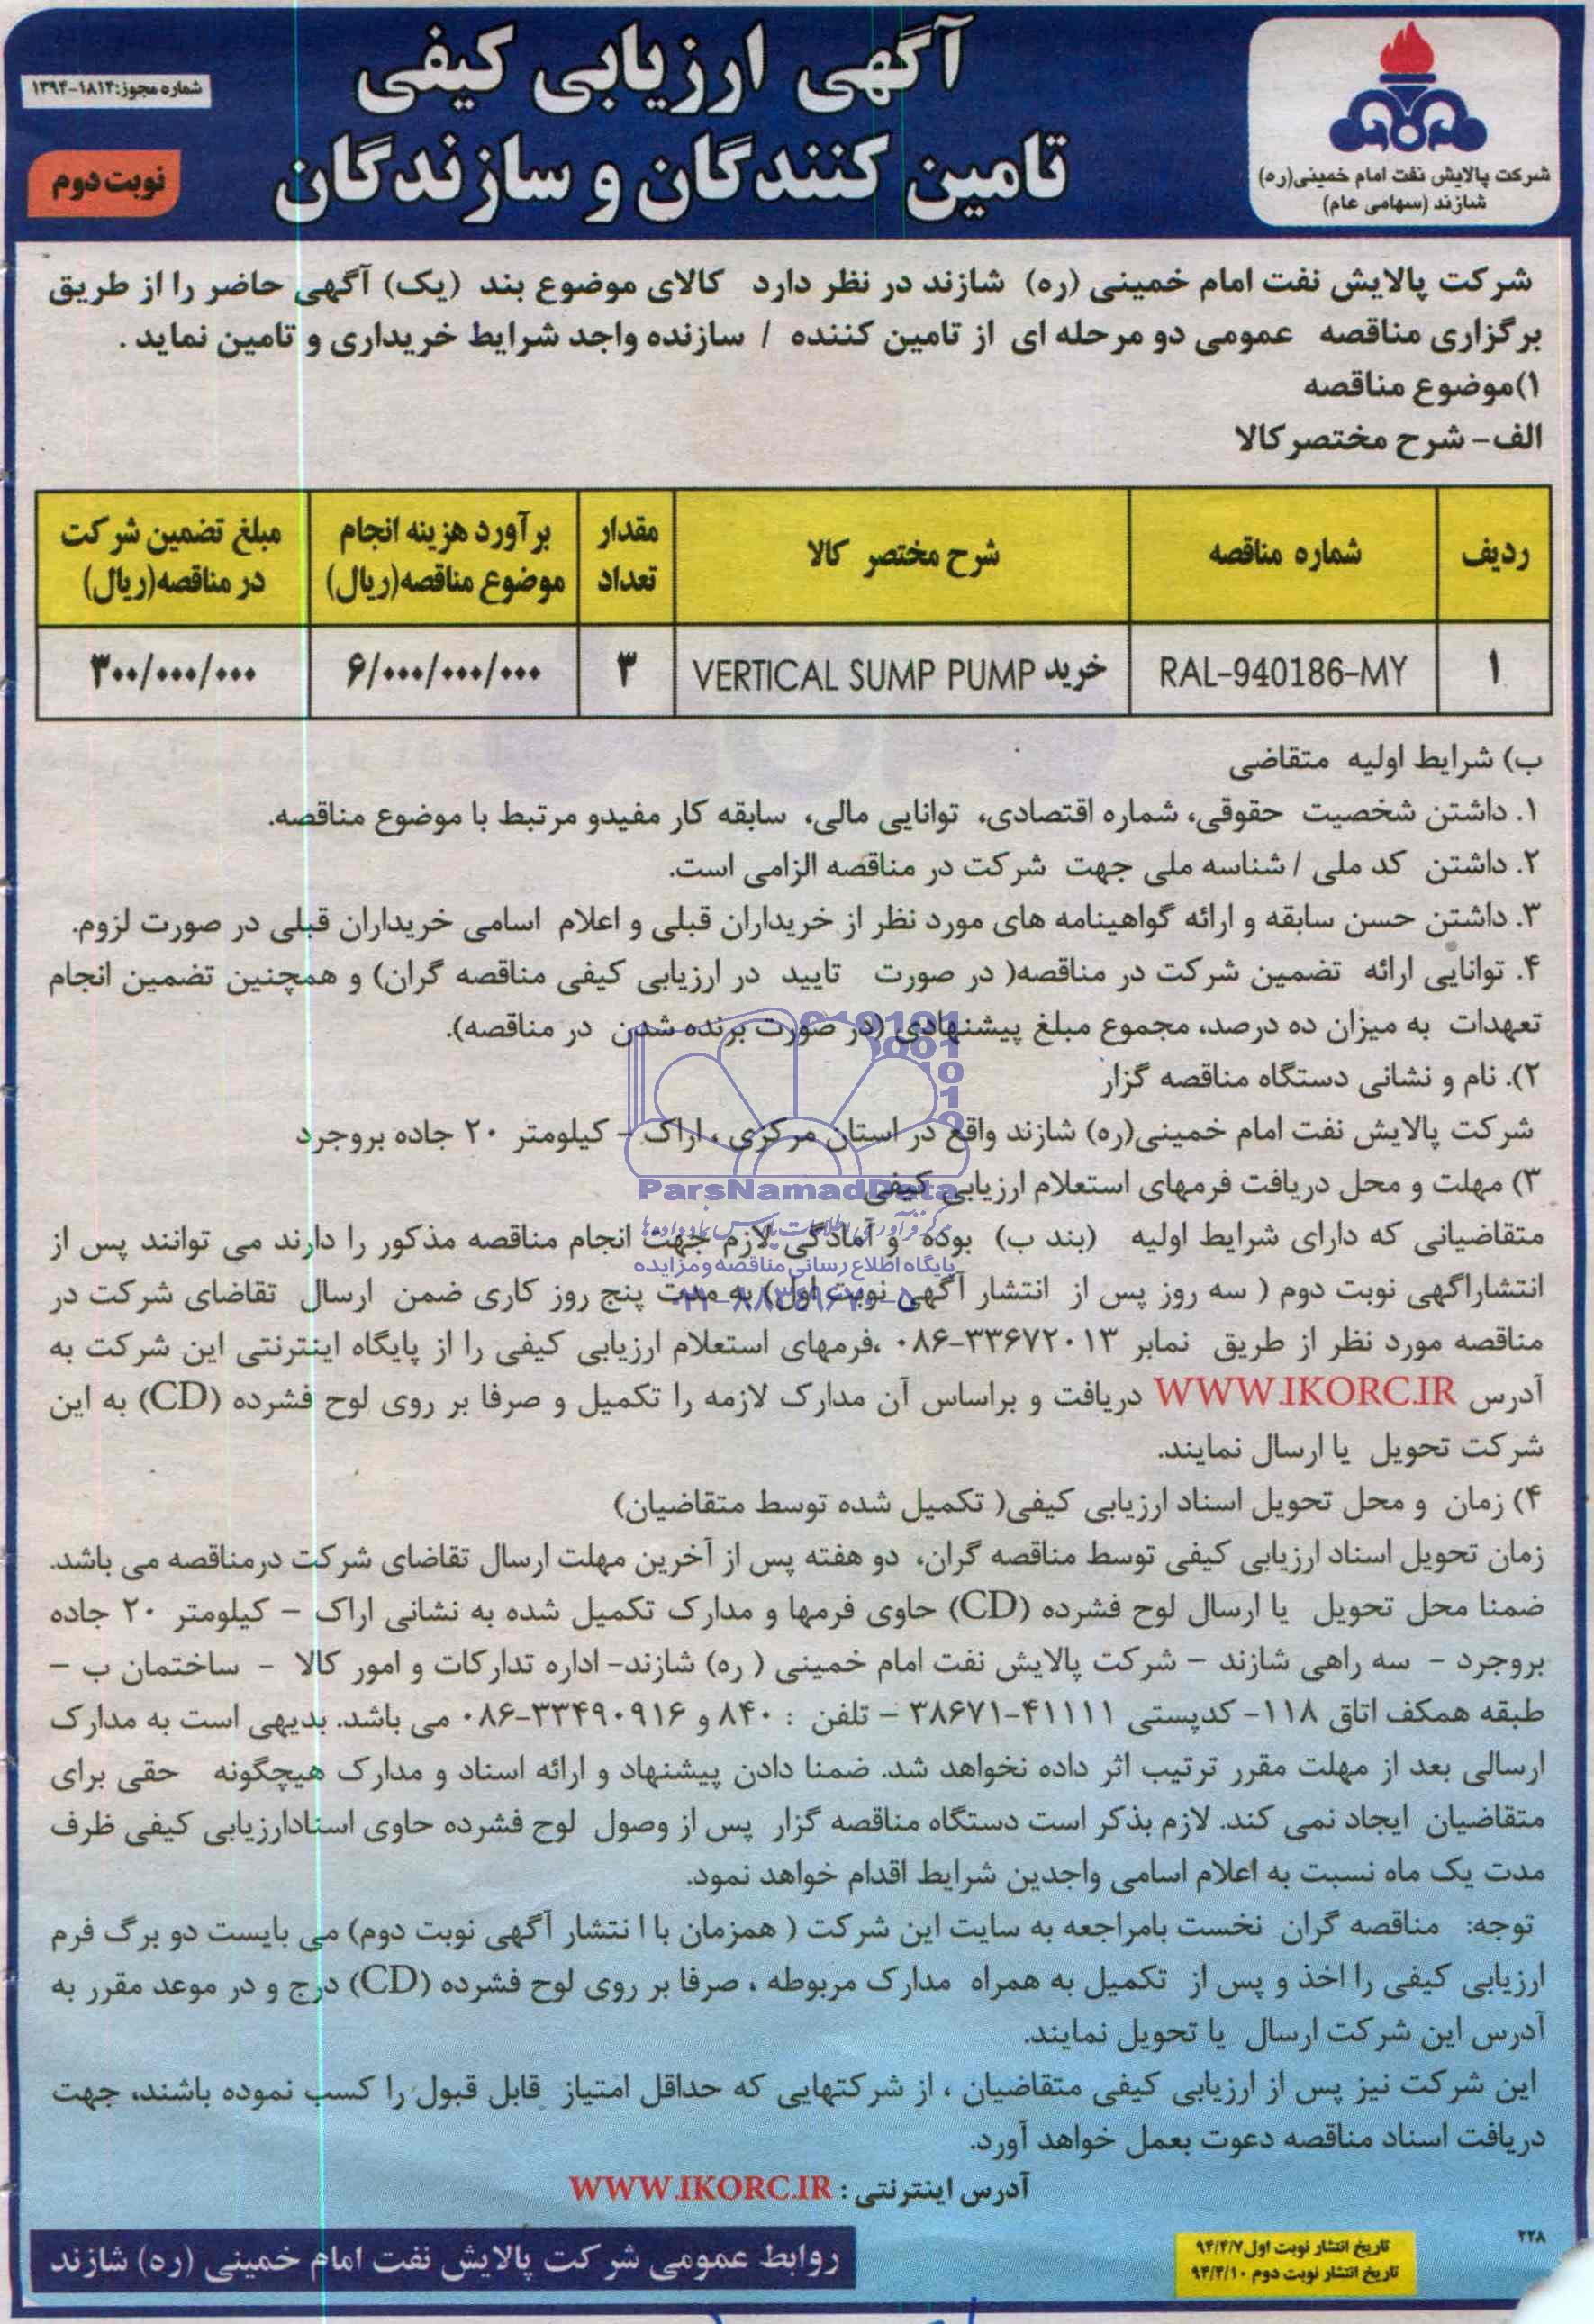 آگهی ارزیابی کیفی
تامین کنندگان و سازندگان
شماره مجوز: ۱۸۱۴-۱۳۹۴
نوبت دوم
شرکت پالایش نفت امام خمینی(ره)
شازند (سهامی عام)
شرکت پالایش نفت امام خمینی (ره) شازند در نظر دارد کالای موضوع بند (یک) آگهی حاضر را از طریق
برگزاری مناقصه عمومی دو مرحله ای از تامین کننده / سازنده واجد شرایط خریداری و تامین نماید .
۱)موضوع مناقصه
الف- شرح مختصر کالا
ردیف | شماره مناقصه | شرح مختصر کالا | مقدار تعداد | برآورد هزینه انجام موضوع مناقصه(ریال) | مبلغ تضمین شرکت در مناقصه(ریال)
۱ | RAL-940186-MY | خرید VERTICAL SUMP PUMP | ۳ | ۶/۰۰۰/۰۰۰/۰۰۰ | ۳۰۰/۰۰۰/۰۰۰
ب) شرایط اولیه متقاضی
۱. داشتن شخصیت حقوقی، شماره اقتصادی، توانایی مالی، سابقه کار مفیدو مرتبط با موضوع مناقصه.
۲. داشتن کد ملی / شناسه ملی جهت شرکت در مناقصه الزامی است.
۳. داشتن حسن سابقه و ارائه گواهینامه های مورد نظر از خریداران قبلی و اعلام اسامی خریداران قبلی در صورت لزوم.
۴. توانایی ارائه تضمین شرکت در مناقصه( در صورت تایید در ارزیابی کیفی مناقصه گران) و همچنین تضمین انجام
تعهدات به میزان ده درصد، مجموع مبلغ پیشنهادی (در صورت برنده شدن در مناقصه).
۲). نام و نشانی دستگاه مناقصه گزار
شرکت پالایش نفت امام خمینی(ره) شازند واقع در استان مرکزی ، اراک - کیلومتر ۲۰ جاده بروجرد
۳) مهلت و محل دریافت فرمهای استعلام ارزیابی کیفی
ParsNamadData
متقاضیانی که دارای شرایط اولیه (بند ب) بوده و آمادگی لازم جهت انجام مناقصه مذکور را دارند می توانند پس از
پایگاه اطلاع رسانی مناقصه و مزایده
انتشاراگهی نوبت دوم ( سه روز پس از انتشار آگهی نوبت اول) به مدت پنج روز کاری ضمن ارسال تقاضای شرکت در
مناقصه مورد نظر از طریق نمابر ۳۳۶۷۲۰۱۳-۰۸۶ ،فرمهای استعلام ارزیابی کیفی را از پایگاه اینترنتی این شرکت به
آدرس WWW.IKORC.IR دریافت و براساس آن مدارک لازمه را تکمیل و صرفا بر روی لوح فشرده (CD) به این
شرکت تحویل یا ارسال نمایند.
۴) زمان و محل تحویل اسناد ارزیابی کیفی( تکمیل شده توسط متقاضیان)
زمان تحویل اسناد ارزیابی کیفی توسط مناقصه گران، دو هفته پس از آخرین مهلت ارسال تقاضای شرکت درمناقصه می باشد.
ضمنا محل تحویل یا ارسال لوح فشرده (CD) حاوی فرمها و مدارک تکمیل شده به نشانی اراک - کیلومتر ۲۰ جاده
بروجرد - سه راهی شازند - شرکت پالایش نفت امام خمینی ( ره) شازند- اداره تدارکات و امور کالا - ساختمان ب -
طبقه همکف اتاق ۱۱۸- کدپستی ۴۱۱۱۱-۳۸۶۷۱ - تلفن : ۸۴۰ و ۳۳۴۹۰۹۱۶-۰۸۶ می باشد. بدیهی است به مدارک
ارسالی بعد از مهلت مقرر ترتیب اثر داده نخواهد شد. ضمنا دادن پیشنهاد و ارائه اسناد و مدارک هیچگونه حقی برای
متقاضیان ایجاد نمی کند. لازم بذکر است دستگاه مناقصه گزار پس از وصول لوح فشرده حاوی اسنادارزیابی کیفی ظرف
مدت یک ماه نسبت به اعلام اسامی واجدین شرایط اقدام خواهد نمود.
توجه: مناقصه گران نخست بامراجعه به سایت این شرکت ( همزمان با انتشار آگهی نوبت دوم) می بایست دو برگ فرم
ارزیابی کیفی را اخذ و پس از تکمیل به همراه مدارک مربوطه ، صرفا بر روی لوح فشرده (CD) درج و در موعد مقرر به
آدرس این شرکت ارسال یا تحویل نمایند.
این شرکت نیز پس از ارزیابی کیفی متقاضیان ، از شرکتهایی که حداقل امتیاز قابل قبول را کسب نموده باشند، جهت
دریافت اسناد مناقصه دعوت بعمل خواهد آورد.
آدرس اینترنتی : WWW.IKORC.IR
۲۲۸
تاریخ انتشار نوبت اول ۹۴/۴/۷
تاریخ انتشار نوبت دوم ۹۴/۴/۱۰
روابط عمومی شرکت پالایش نفت امام خمینی (ره) شازند